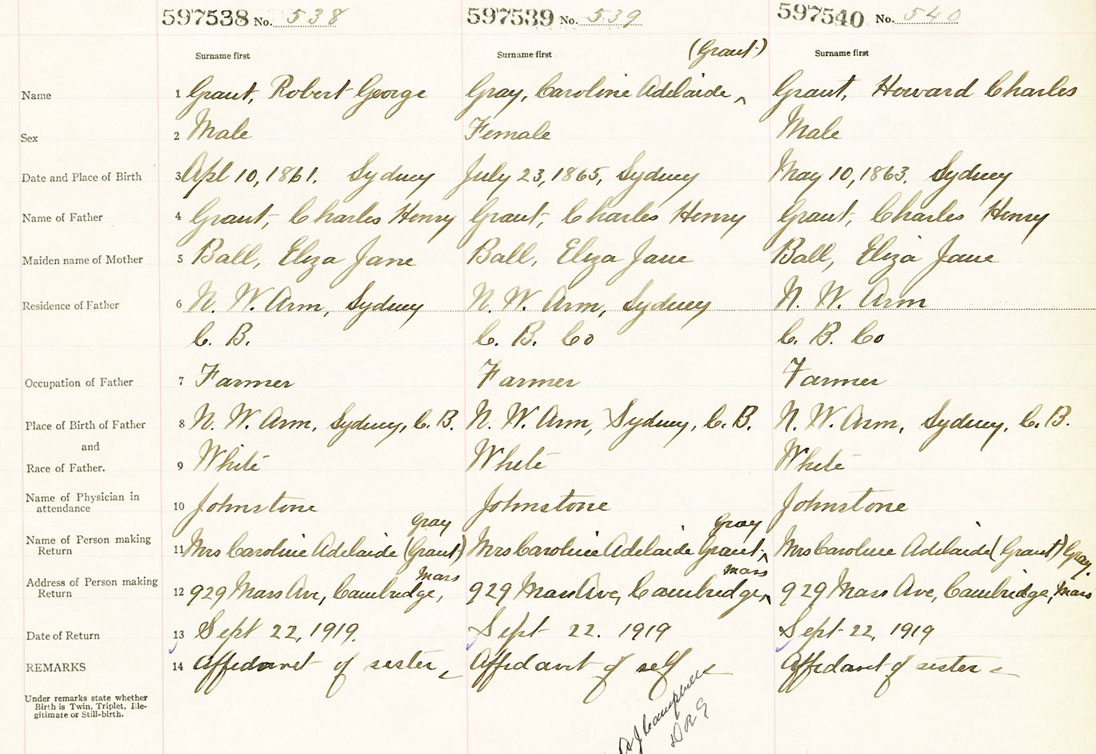 597538 No. 538 597539 No. 539 597540 No. 540
Surname first Surname first (Grant) Surname first
Name 1 Grant, Robert George Gray, Caroline Adelaide ^ Grant, Howard Charles
Sex 2 Male Female Male
Date and Place of Birth 3 Apl 10, 1861. Sydney July 23, 1865, Sydney May 10, 1863. Sydney
Name of Father 4 Grant, Charles Henry Grant, Charles Henry Grant, Charles Henry
Maiden name of Mother 5 Ball, Eliza Jane Ball, Eliza Jane Ball, Eliza Jane
Residence of Father 6 N. W. Arm, Sydney N. W. Arm, Sydney N. W. Arm
C. B. C. B. Co C. B. Co
Occupation of Father 7 Farmer Farmer Farmer
Place of Birth of Father 8 N. W. Arm, Sydney, C. B. N. W. Arm, Sydney, C. B. N. W. Arm, Sydney, C. B.
and
Race of Father. 9 White White White
Name of Physician in
attendance 10 Johnstone Johnstone Johnstone
Gray Gray
Name of Person making
Return 11 Mrs Caroline Adelaide (Grant) Mrs Caroline Adelaide Grant ^ Mrs Caroline Adelaide (Grant) Gray.
Mass Mass
Address of Person making
Return 12 929 Mass Ave, Cambridge, 929 Mass Ave, Cambridge, ^ 929 Mass Ave, Cambridge, Mass
Date of Return 13 Sept 22, 1919. Sept 22. 1919 Sept 22, 1919
REMARKS 14 Affidavit of sister Affidavit of self Affidavit of sister
Under remarks state whether
Birth is Twin, Triplet, Ille-
gitimate or Still-birth.
Campbell
D R G